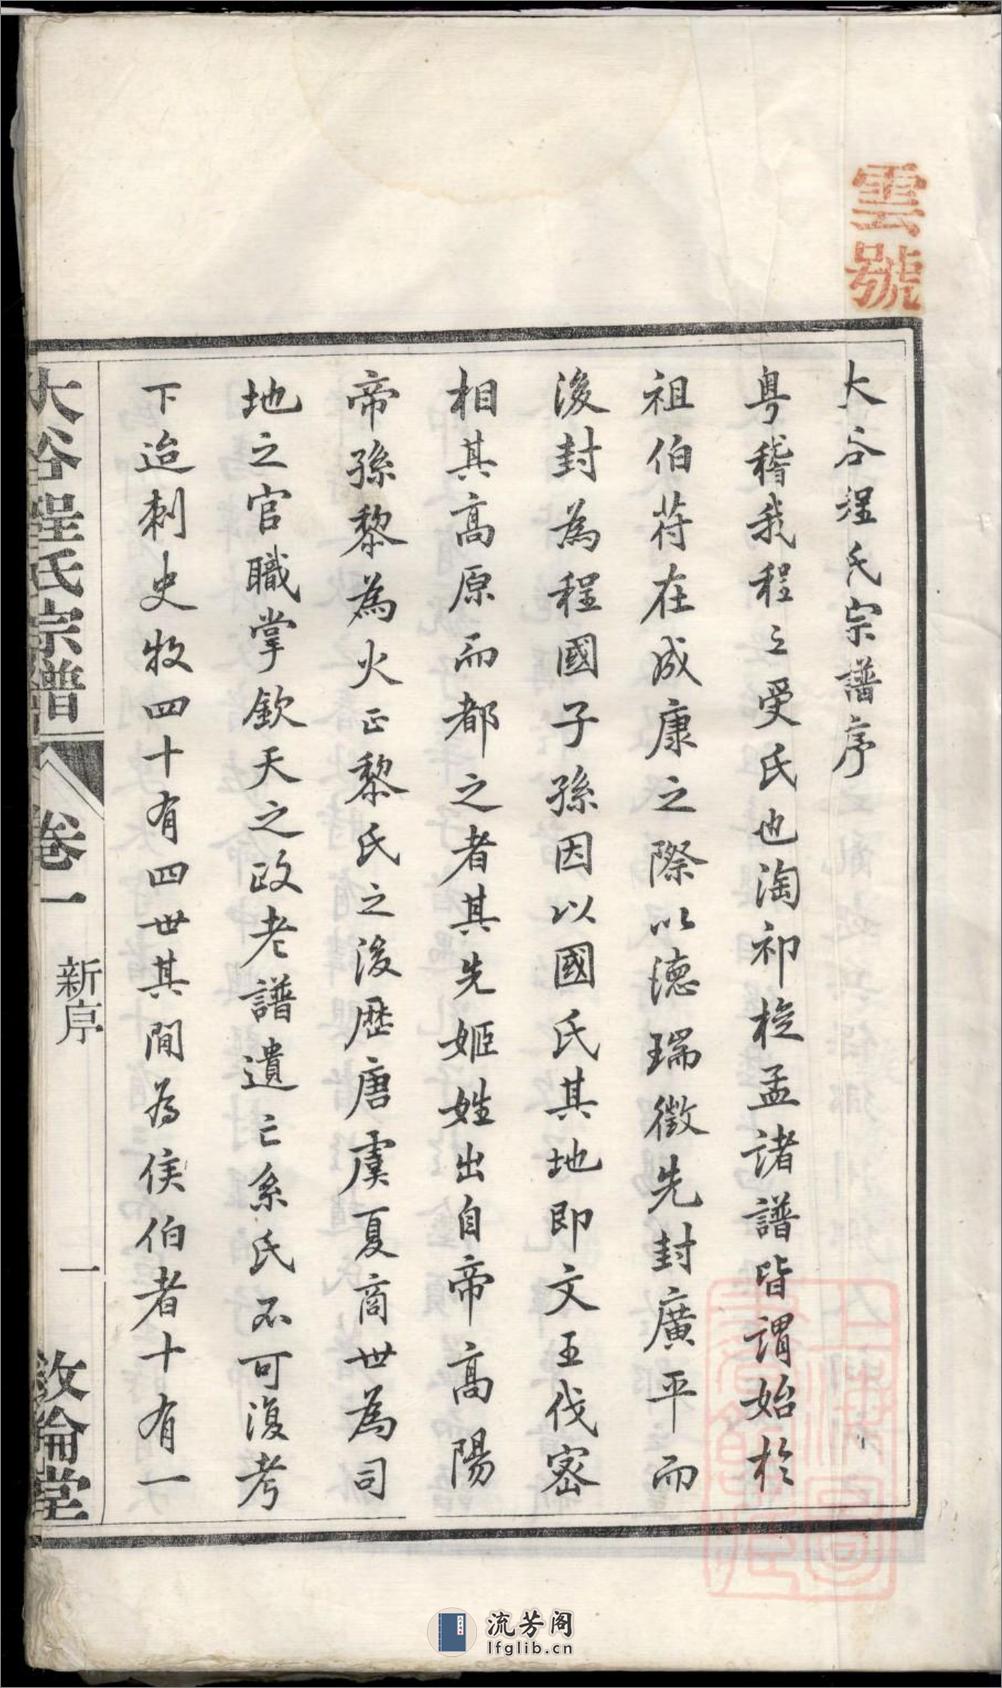 雲號
大谷程氏宗譜序
粤稽我程之受氏也淘祁挖孟諸譜皆謂始於
祖伯苻在成康之際以德瑞徵先封廣平而
後封為程國子孫因以國氏其地即文王伐密
相其高原而都之者其先姬姓出自帝高陽
帝孫黎為火正黎氏之後歷唐虞夏商世為司
地之官職掌欽天之政老譜遺亡系氏不可復考
下迨刺史牧四十有四世其間為侯伯者十有一
大谷程氏宗譜
卷一
新序
一
敦倫堂
流芳阁
lfglib.cn